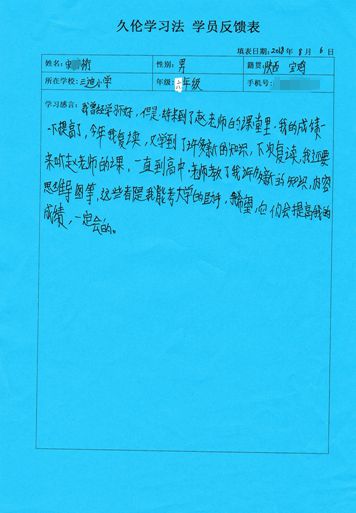 久伦学习法 学员反馈表
填表日期：2018年 8月 6日
姓名： 性别：男 籍贯：陕西 宝鸡
所在学校：三迪小学 年级：六年级 手机号：
学习感言：我曾经学不好，但是 来到了赵老师的课堂里，我的成绩一
下提高了，今年我复读，又学到了许多新的知识，下次复读，我还要
来听赵老师的课，一直到高中，老师教了我许多新的知识，内容
思维导图等，这些都是我能考大学的助手，希望，它们会提高我的
成绩，一定会的。